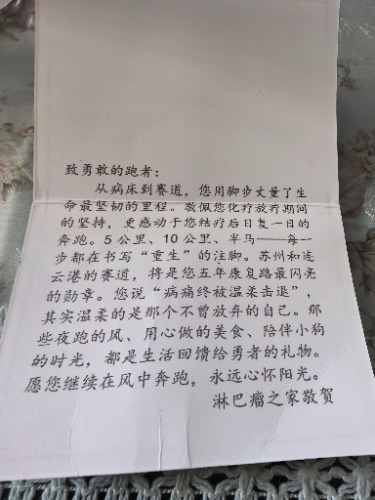 致勇敢的跑者：
从病床到赛道，您用脚步丈量了生
命最坚韧的里程。敬佩您化疗放疗期间
的坚持，更感动于您结疗后日复一日的
奔跑。5公里、10公里、半马——每一
步都在书写“重生”的注脚。苏州和连
云港的赛道，将是您五年康复路最闪亮
的勋章。您说“病痛终被温柔击退”，
其实温柔的是那个不曾放弃的自己。那
些夜跑的风、用心做的美食、陪伴小狗
的时光，都是生活回馈给勇者的礼物。
愿您继续在风中奔跑，永远心怀阳光。
淋巴瘤之家敬贺